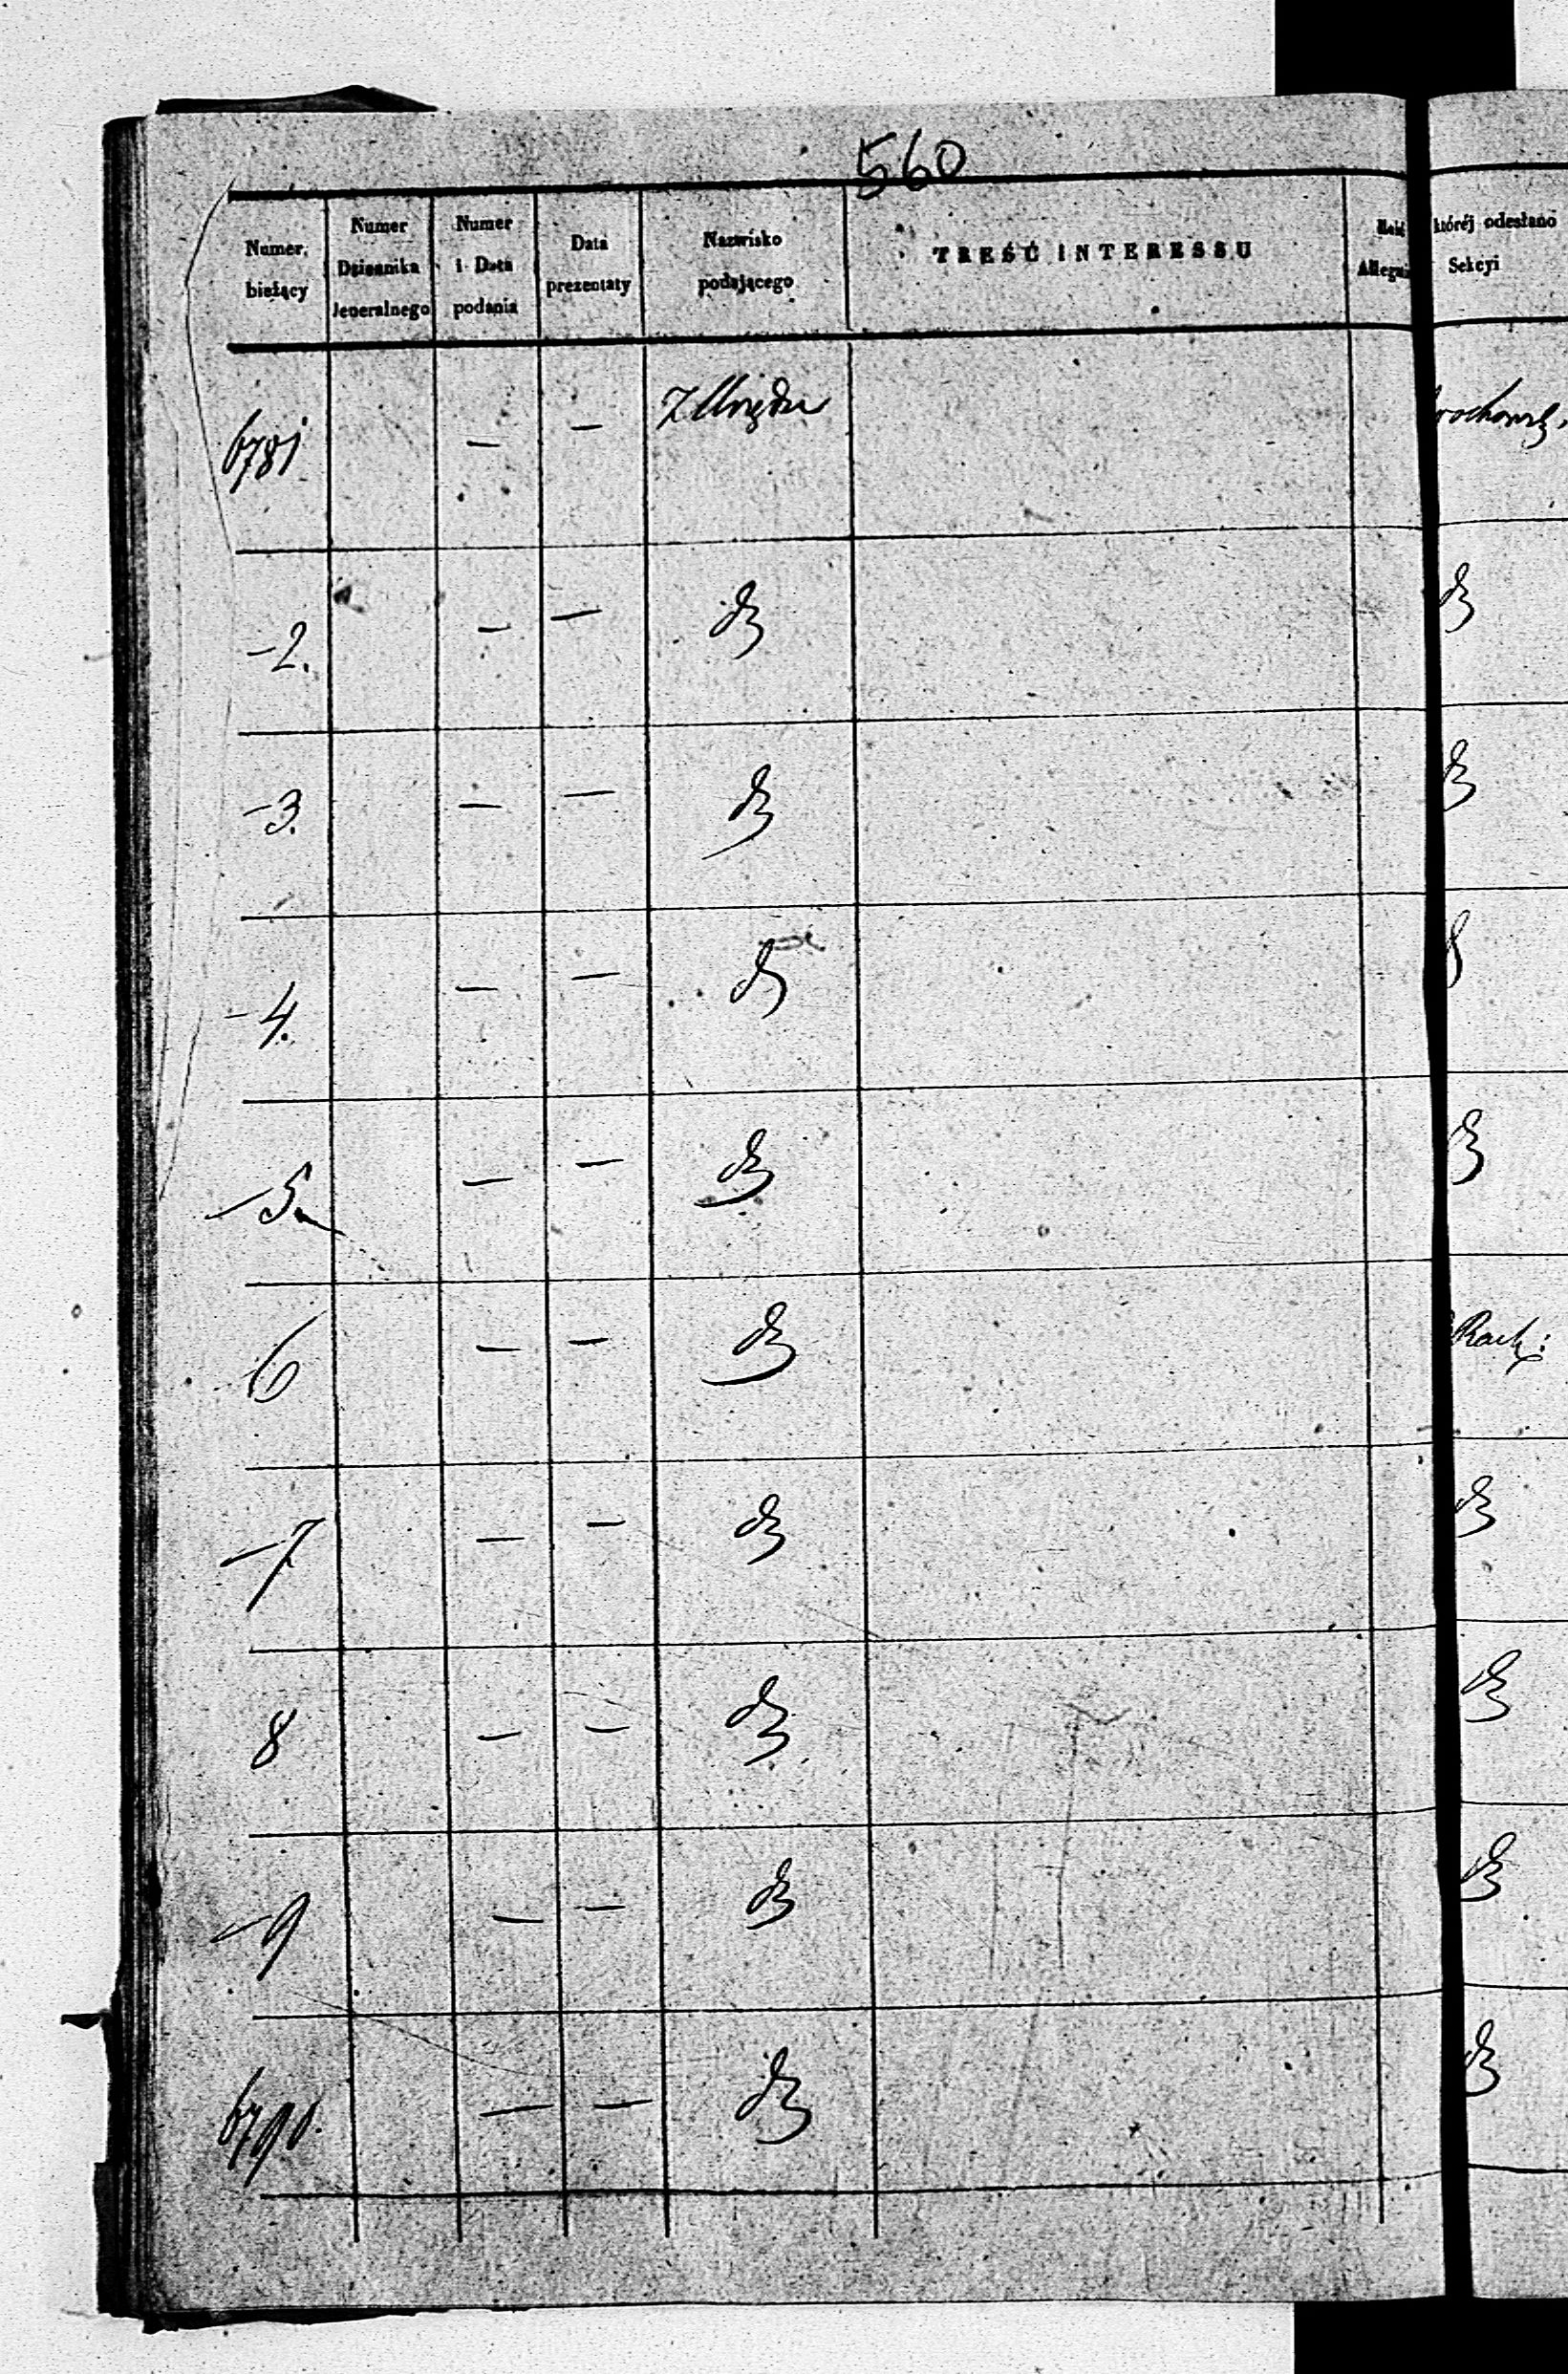 560
Numer bieżący
Numer Dziennika Jeneralnego
Numer i Data podania
Data prezentaty
Nazwisko podającego
TREŚĆ INTERESSU
Ilość Allegat
któréj odesłano Sekcyi
6781 — — Z Urzędu
-2. — — do
-3. — — do
-4. — — do
-5. — — do
6 — — do
-7 — — do
8 — — do
-9 — — do
6790. — — do